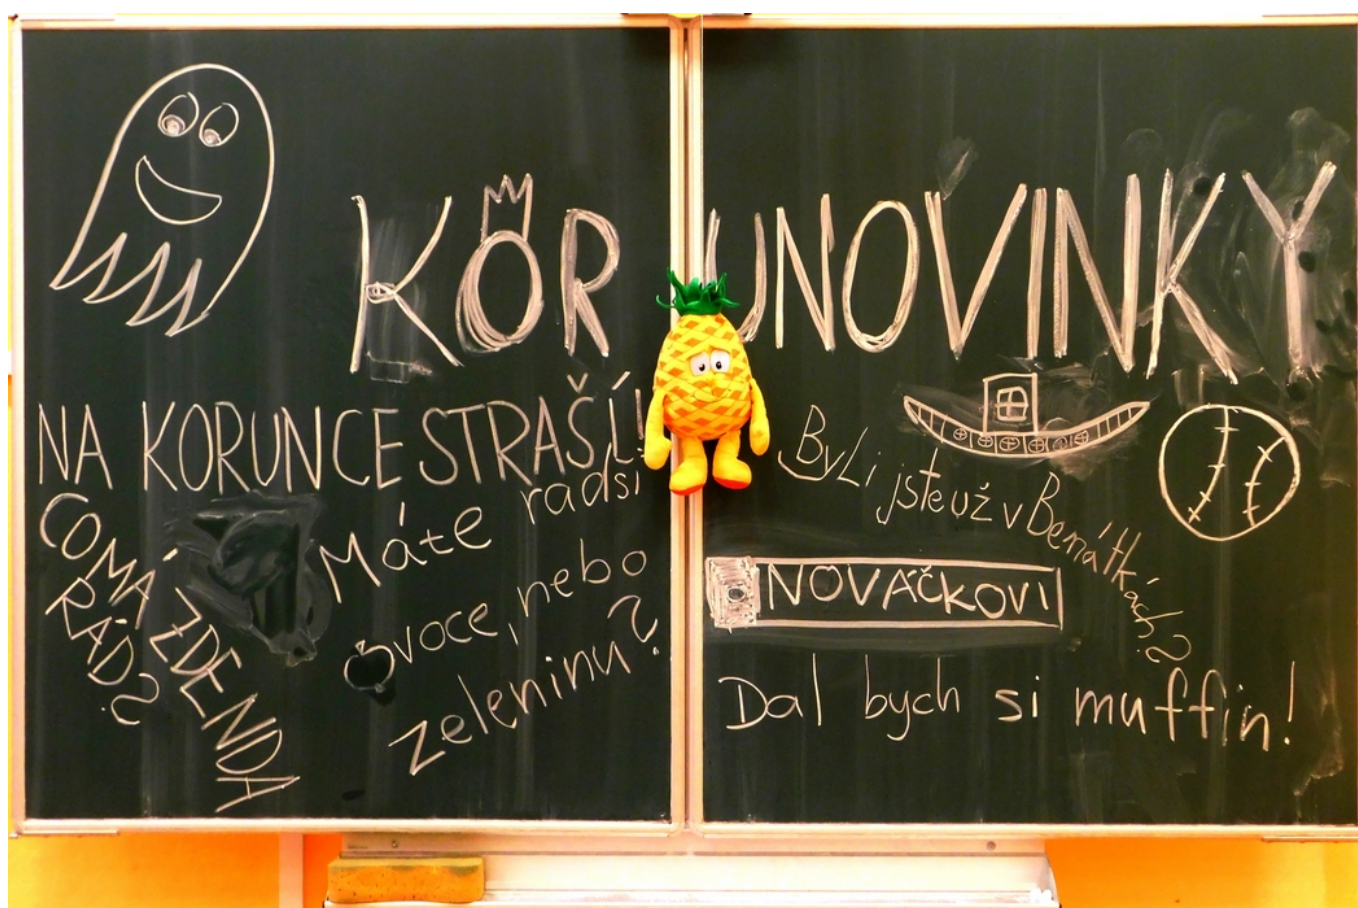 KORUNOVINKY
NA KORUNCE STRAŠÍ!
CO MÁ ZDENDA
RÁD?
Máte radši
ovoce, nebo
zeleninu?
Byli jste už v Benátkách?
NOVÁČKOVI
Dal bych si muffin!